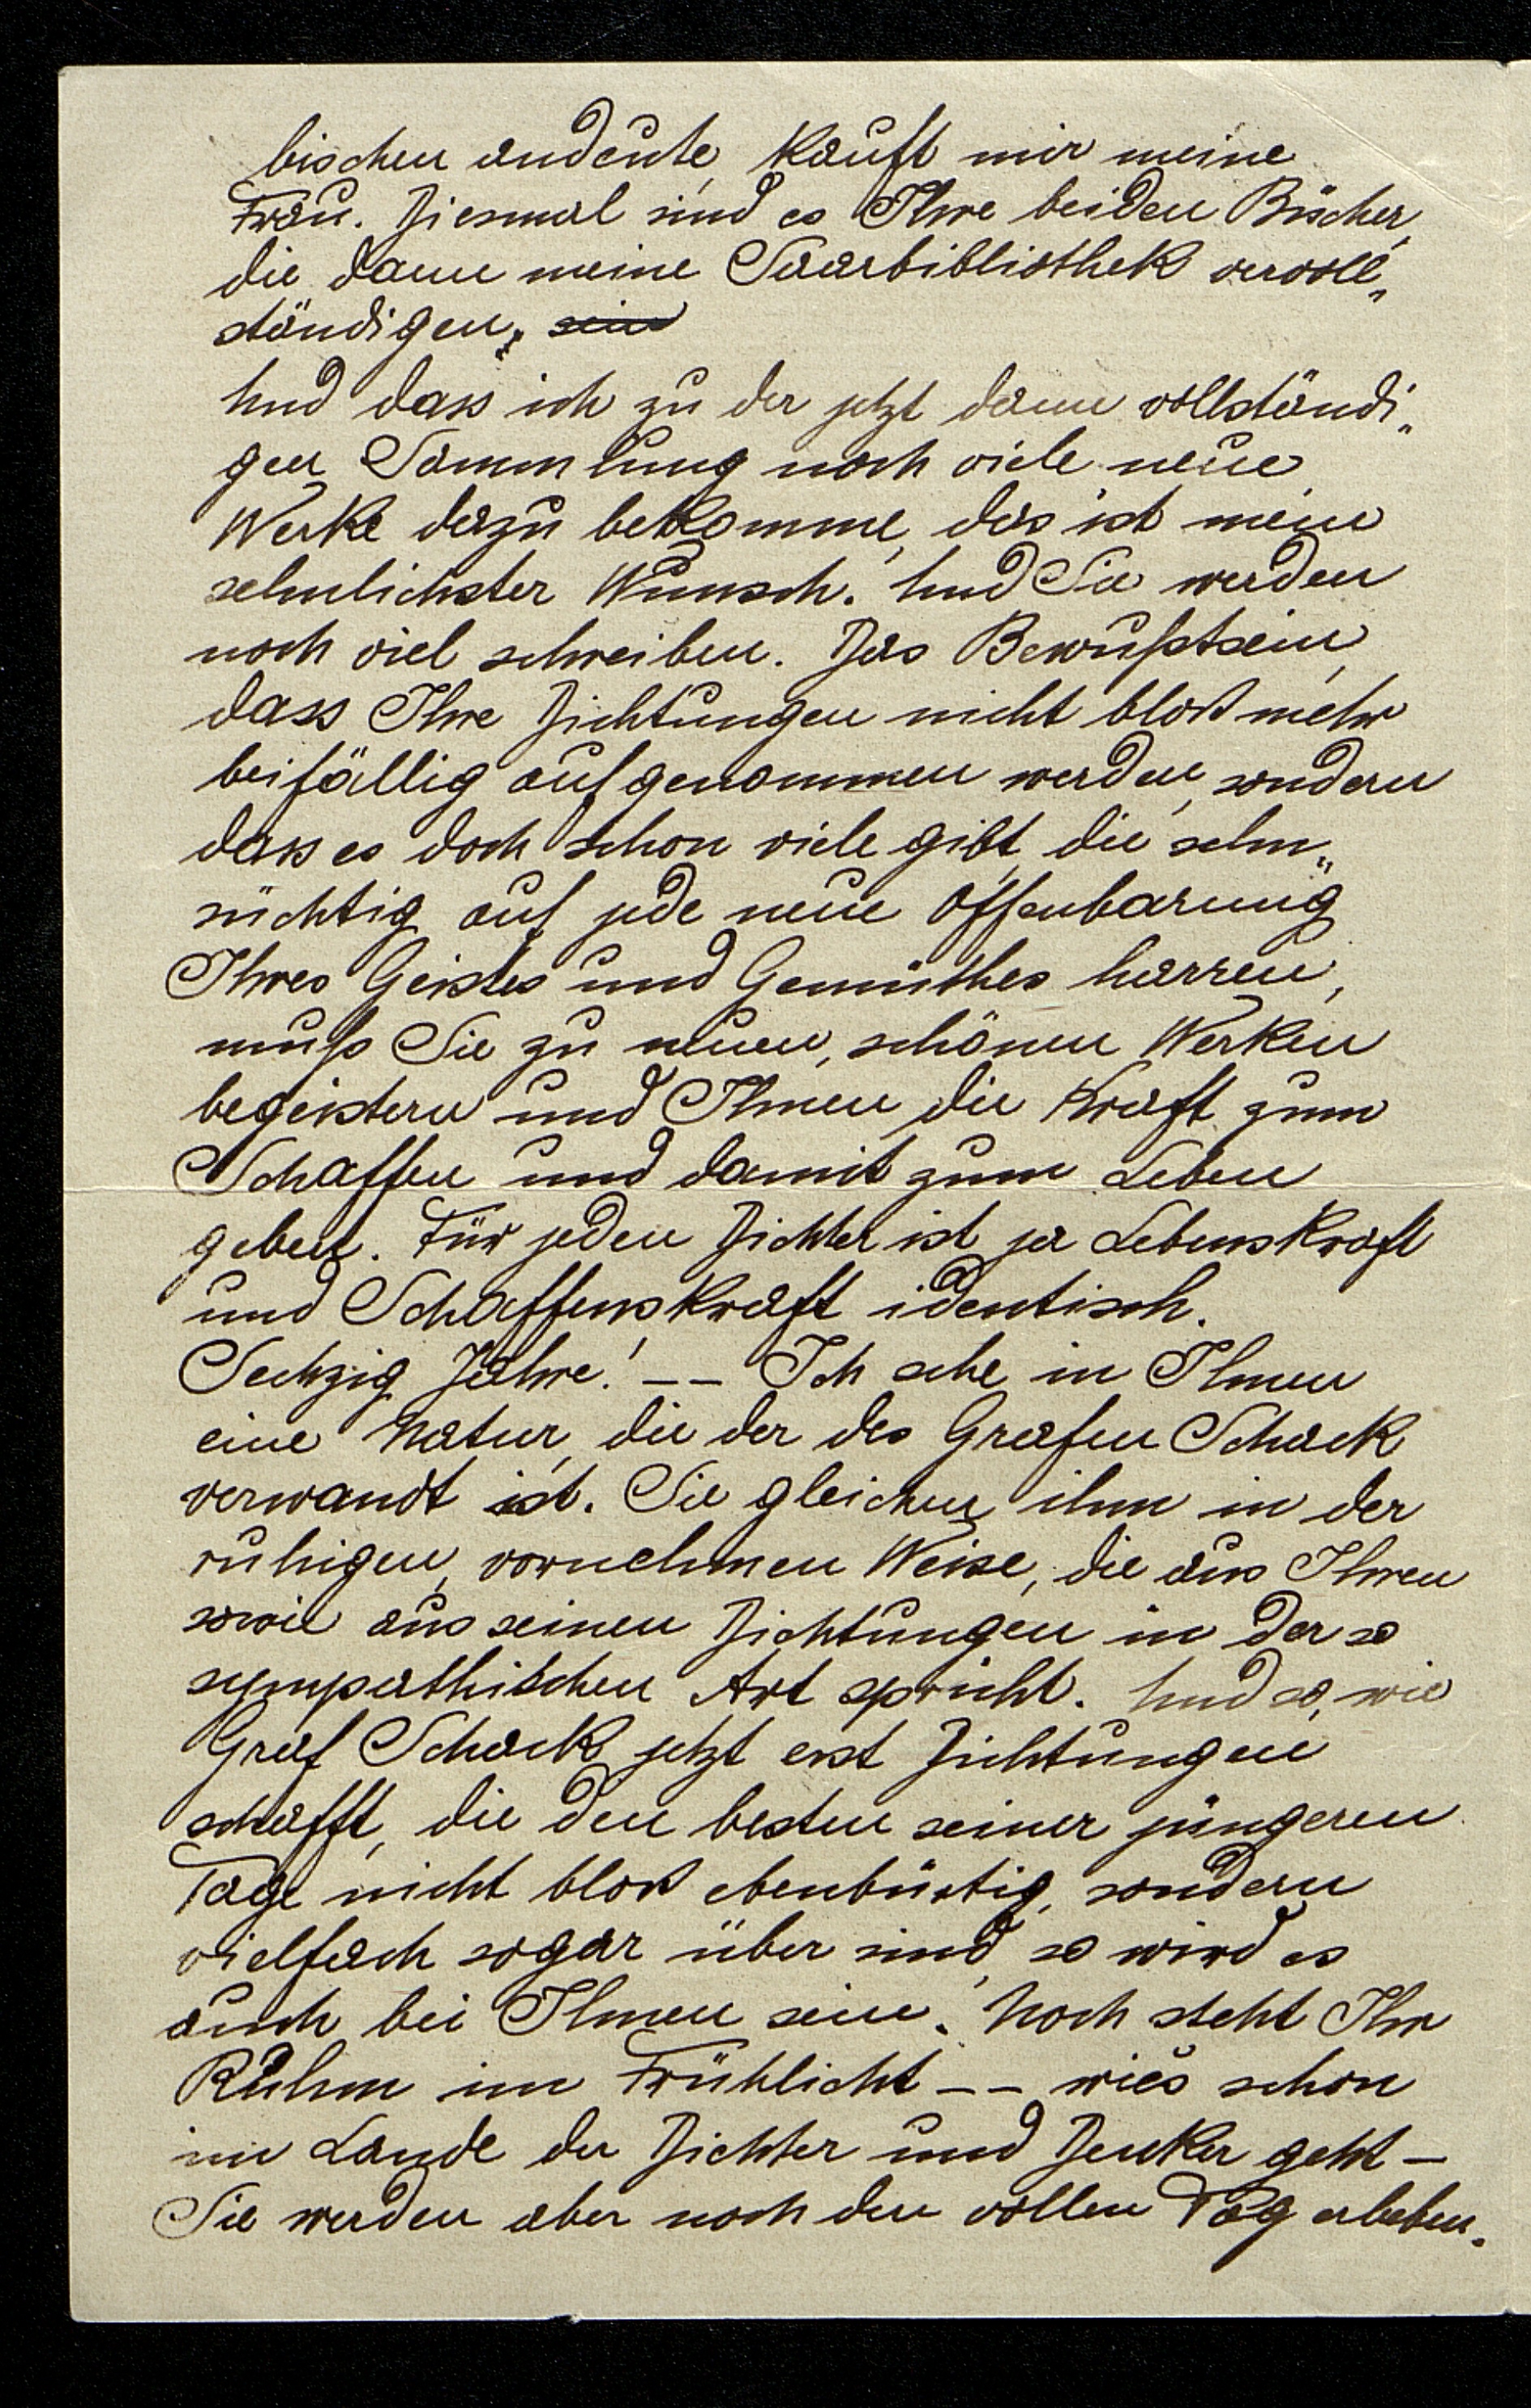 bischen andeute, kauft mir meine
Frau. Diesmal sind es Ihre beiden Bücher,
die dann meine Saarbibliothek vervoll„
ständigen. sind
Und dass ich zu der jetzt dann vollständi„
gen Sammlung noch viele neue
Werke dazu bekomme, das ist mein
sehnlichster Wunsch. Und Sie werden
noch viel schreiben. Das Bewußtsein,
dass Ihre Dichtungen nicht bloß mehr
beifällig aufgenommen werden, sondern
dass es doch schon viele gibt, die sehn„
süchtig auf jede neue Offenbarung
Ihres Geistes und Gemüthes harren,
muß Sie zu neuen, schönen Werken
begeistern und Ihnen die Kraft zum
Schaffen und damit zum Leben
geben. Für jeden Dichter ist ja Lebenskraft
und Schaffenskraft identisch.
Sechzig Jahre! -- Ich sehe in Ihnen
eine Natur, die der des Grafen Schack
verwandt ist. Sie gleichen ihm in der
ruhigen, vornehmen Weise, die aus Ihren
sowie aus seinen Dichtungen in der so
sympathischen Art spricht. Und so, wie
Graf Schack jetzt erst Dichtungen
schafft, die den besten seiner jüngeren
Tage nicht bloß ebenbürtig, sondern
vielfach sogar über sind, so wird es
auch bei Ihnen sein. Noch steht Ihr
Ruhm im Frühlicht -- wie's schon
im Lande der Dichter und Denker geht -
Sie werden aber noch den vollen Tag erleben.